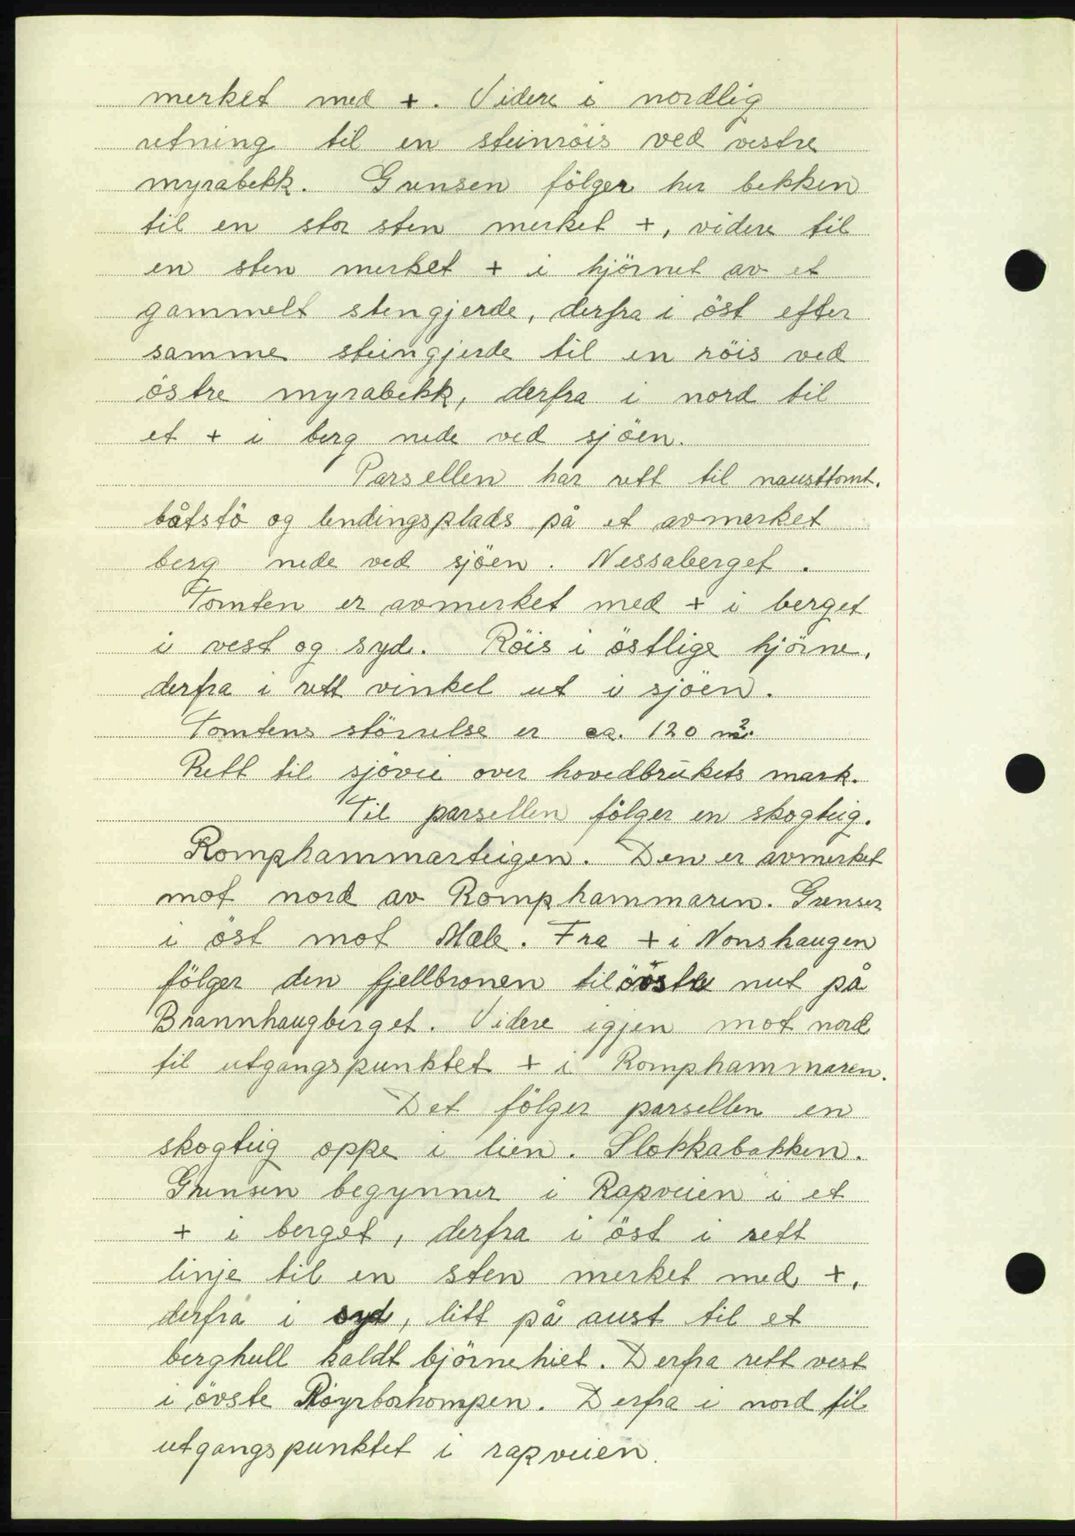 merket med +. Videre i nordlig
retning til en steinröis ved vestre
myrabekk. Grensen fölger her bekken
til en stor sten merket +, videre til
en sten merket + i hjörnet av et
gammelt stengjerde, derfra i öst efter
samme steingjerde til en röis ved
östre myrabekk, derfra i nord til
et + i berg nede ved sjöen.
Parsellen har rett til nausttomt.
båtstö og lendingsplads på et avmerket
berg nede ved sjöen. Nessaberget.
Tomten er avmerket med + i berget
i vest og syd. Röis i östlige hjörne,
derfra i rett vinkel ut i sjöen.
Tomtens störrelse er ca. 120 m².
Rett til sjövei over hovedbrukets mark.
Til parsellen fölger en skogteig.
Romphammarteigen. Den er avmerket
mot nord av Romphammaren. Grenser
i öst mot Mæle. Fra + i Nonshaugen
fölger den fjellbronen til nut på
Brannhaugberget. Videre igjen mot nord
til utgangspunktet + i Romphammaren.
Det fölger parsellen en
skogteig oppe i lien. Slokkabakken.
Grensen begynner i Rapveien i et
+ i berget, derfra i öst i rett
linje til en sten merket med +,
derfra i syd, litt på aust til et
berghull kaldt björnehiet. Derfra rett vest
i övste. Derfra i nord til
utgangspunktet i rapveien.